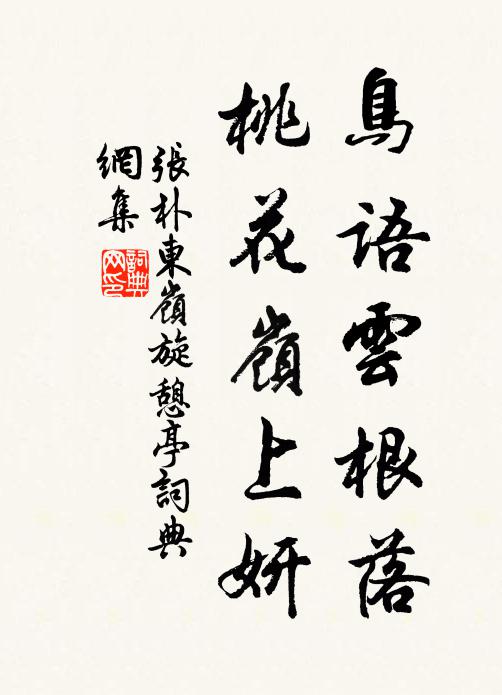 鳥語雲根落
桃花嶺上妍
張朴東嶺旋憩亭詞典
網集
詞典
网印